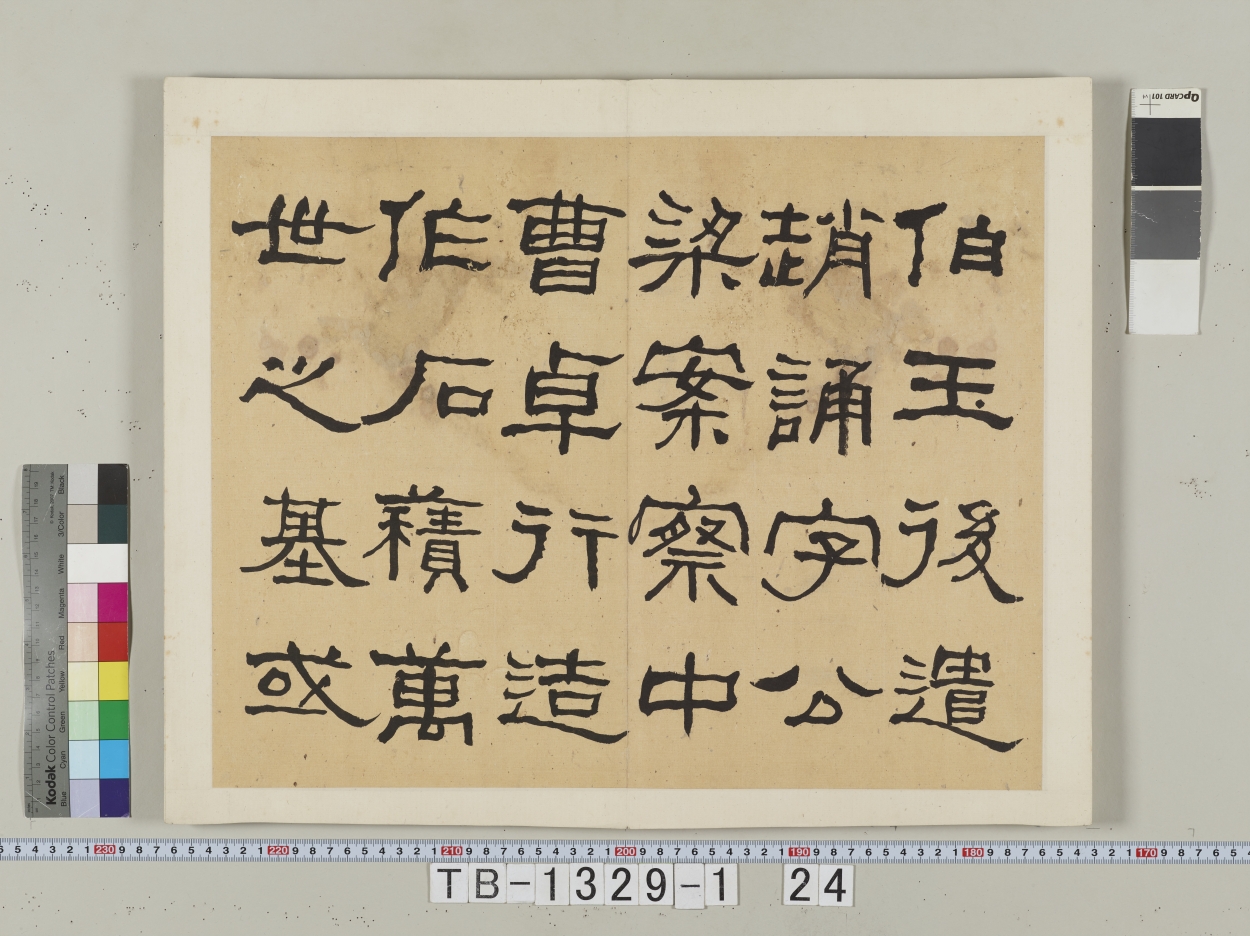 伯玉後遣
趙誦字公
梁案察中
曹卓行造
作石積萬
世之基或
QpCARD 101
Kodak Color Control Patches
Blue Cyan Green Yellow Red Magenta White 3/Color Black
230 220 210 200 190 180 170
TB-1329-1 24